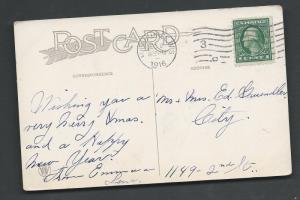 POST CARD
CORRESPONDENCE
ADDRESS
1916
3-
1 CENT 1
Wishing you a
very merry Xmas.
and a Happy
New Year.
from Emma
Mr & Mrs. Ed.
City.
1149-2nd St.
W